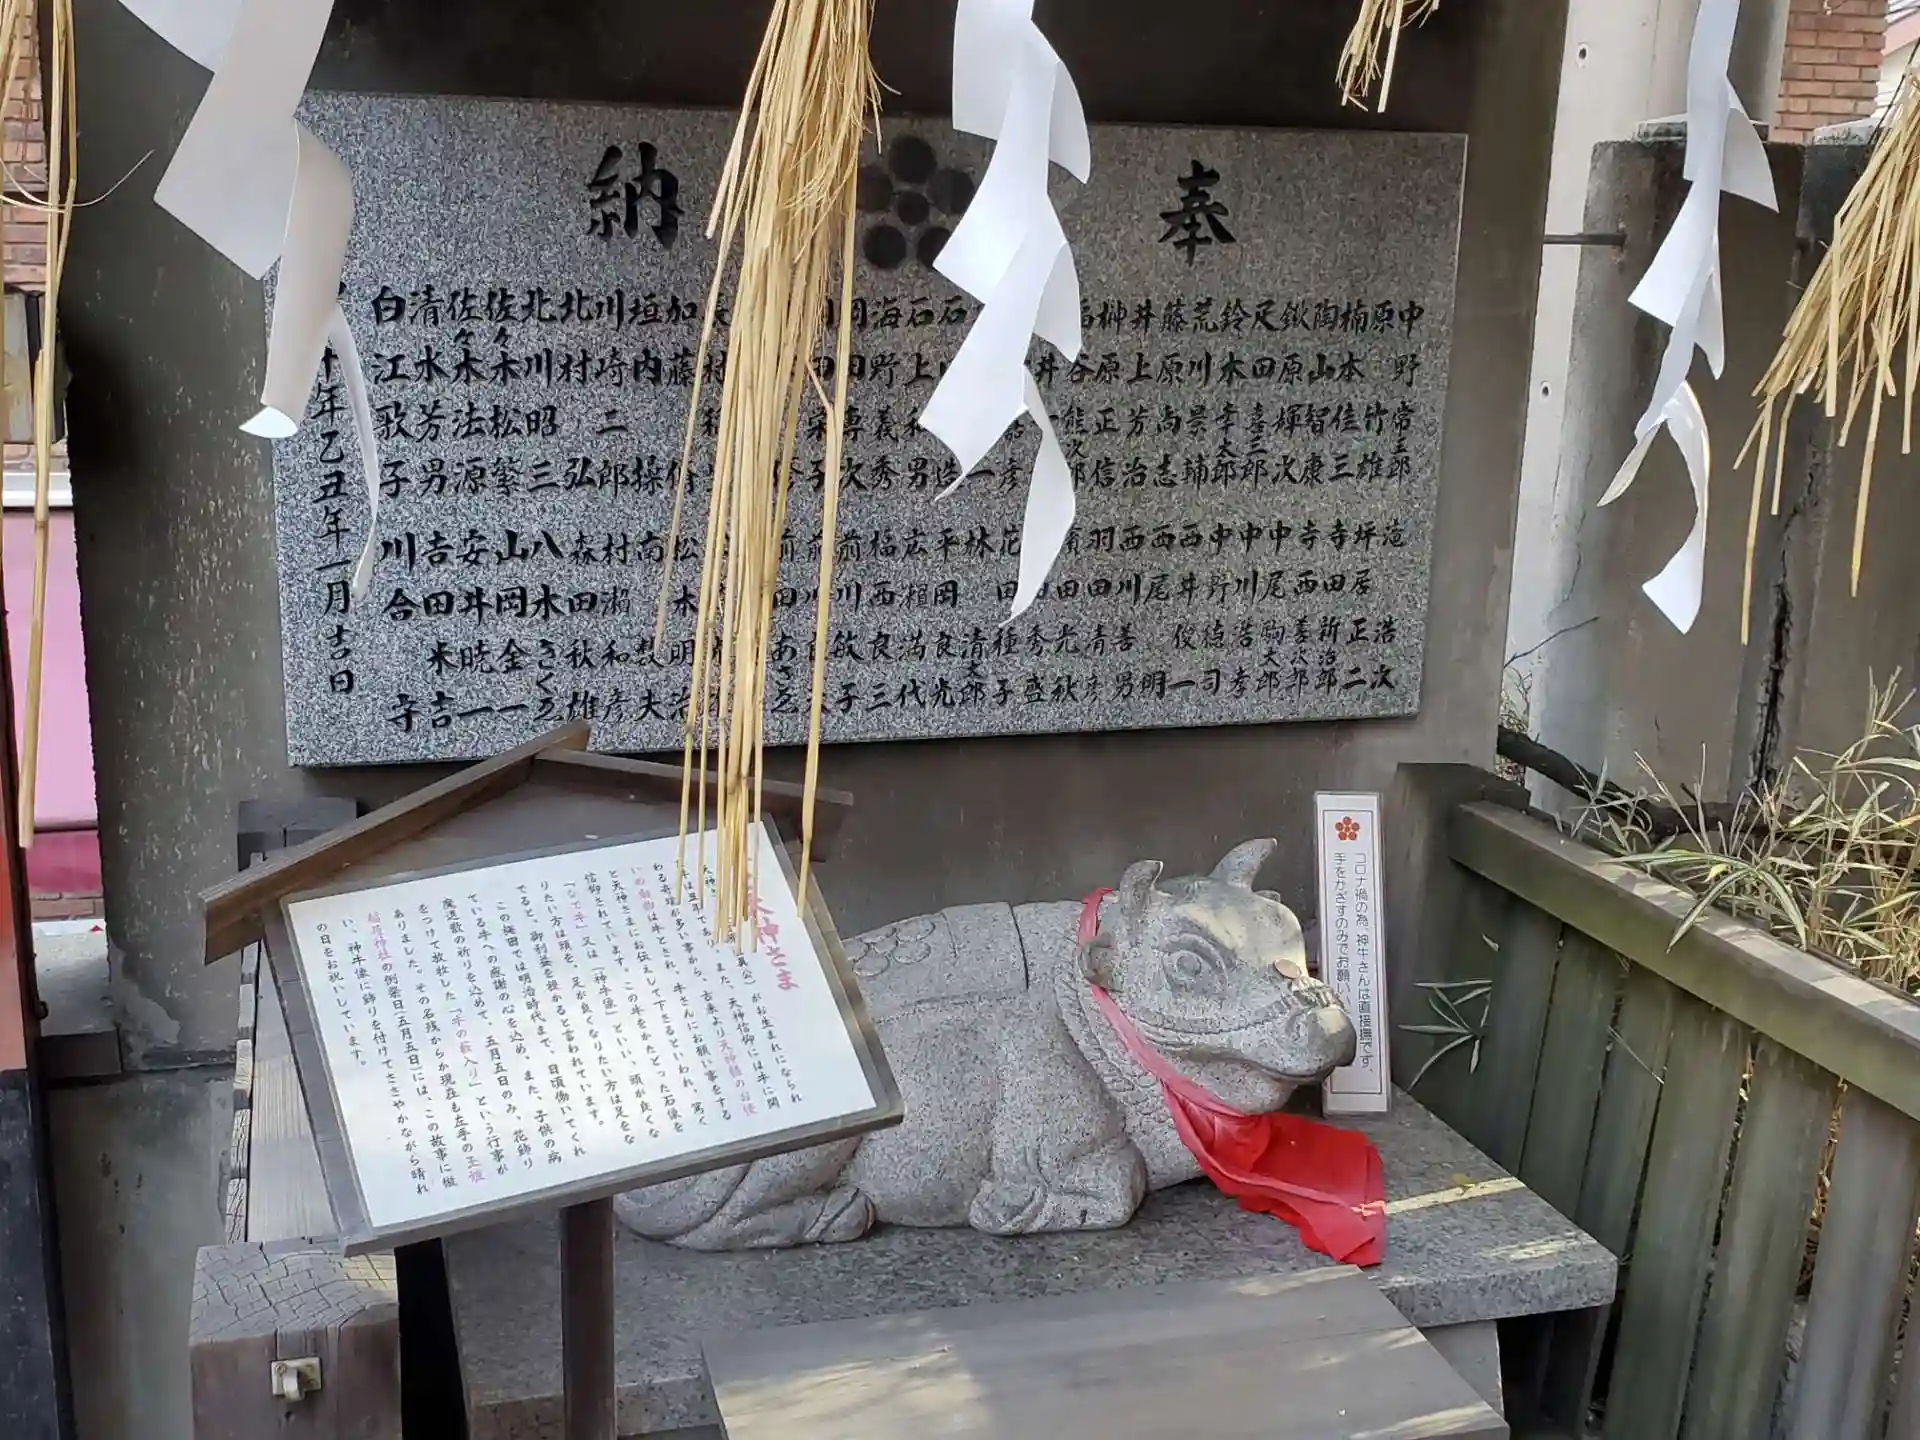 奉納
中野常三郎
原竹雄
楠本佳三
陶山智康
鍬原輝次
足田喜三郎
鈴木幸太郎
荒川景輔
藤原尚志
井上芳治
榊原正信
谷熊次郎
井一彦
石上和男
海野義秀
岡田專次
田栄子
加藤
垣内操
川崎二郎
北村弘
北川昭三
佐々木松繁
佐々木法源
清水芳男
白江歌子
滝居浩次
坪田正二
寺西新治郎
寺尾善次郎
中川駒太郎
中野浩孝
中井徳司
西尾俊一
西川明
西田善男
羽田清彦
田光秋
田秀盛
花田種子
林清太郎
平岡良光
広満代
福西良三
前川敏子
前川良太
前田あさゑ
松木明治
南数夫
村瀬和彦
森田秋雄
八木きくゑ
山岡金一
安井暁一
吉田米吉
川合守
十年乙丑年一月吉日
神さま
天神 真公）がお生まれになられ
た年は丑年であり、また、天神信仰には牛に関
わる奇瑞が多い事から、古来より天神様のお使
いの動物は牛とされ、牛さんにお願い事をする
と天神さまにお伝えして下さるといわれ、篤く
信仰されています。この牛をかたどった石像を
「なで牛」又は「神牛像」といい、頭が良くな
りたい方は頭を、足が良くなりたい方は足をな
でると、御利益を授かると言われています。
この梅田では明治時代まで、日頃働いてくれ
ている牛への感謝の心を込め、また、子供の病
魔退散の祈りを込めて、五月五日のみ、花飾り
をつけて放牧した「牛の藪入り」という行事が
ありました。その名残からか現在も左手の玉姫
稲荷神社の例祭日（五月五日）には、この故事に倣
い、神牛像に飾りを付けてささやかながら晴れ
の日をお祝いしています。
コロナ禍の為、神牛さんは直接撫です、
手をかざすのみでお願い